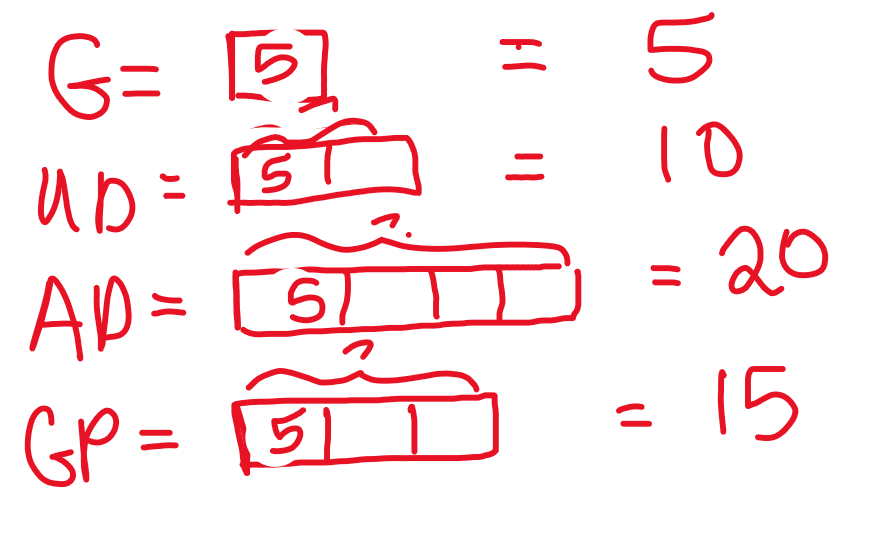 G= 5 = 5
?
UD= 5 = 10
?
AD= 5 = 20
?
GP= 5 = 15